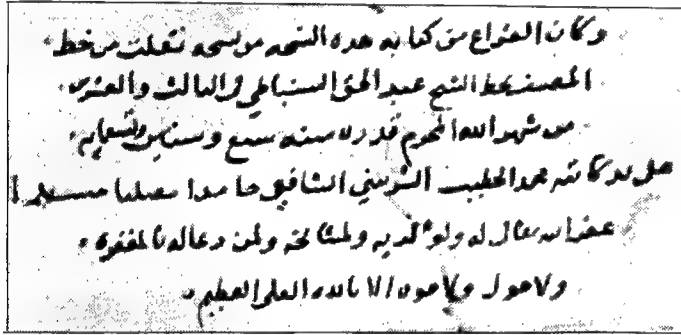 وكان الفراغ من كتابة هذه النسخه من نسخه نقلت من خط
المصنف بخط الشيخ عبد الحق السنباطي في الثالث والعشرين
من شهر الله المحرم قدره سنه سبع وستين وتسعمايه
على يد كاتبه محمد الخطيب الشربيني الشافعي حامدا مصليا مسلما
غفر الله تعالى له ولوالديه ولمشايخه ولمن دعا له بالمغفره
ولا حول ولا قوه الا بالله العلى العظيم